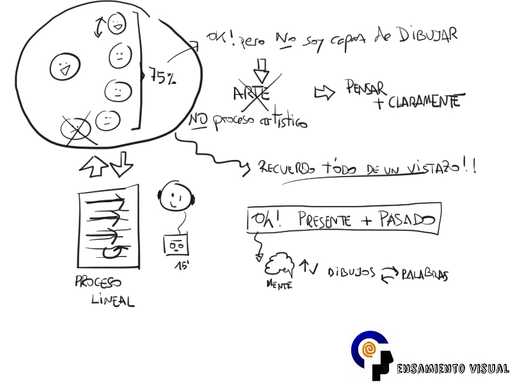 75%
OK! pero NO soy capaz de DIBUJAR
ARTE
PENSAR
+ CLARAMENTE
NO proceso artístico
RECUERDO TODO DE UN VISTAZO!!
OH! PRESENTE + PASADO
MENTE
DIBUJOS
PALABRAS
PROCESO
LINEAL
15'
ENSAMIENTO VISUAL